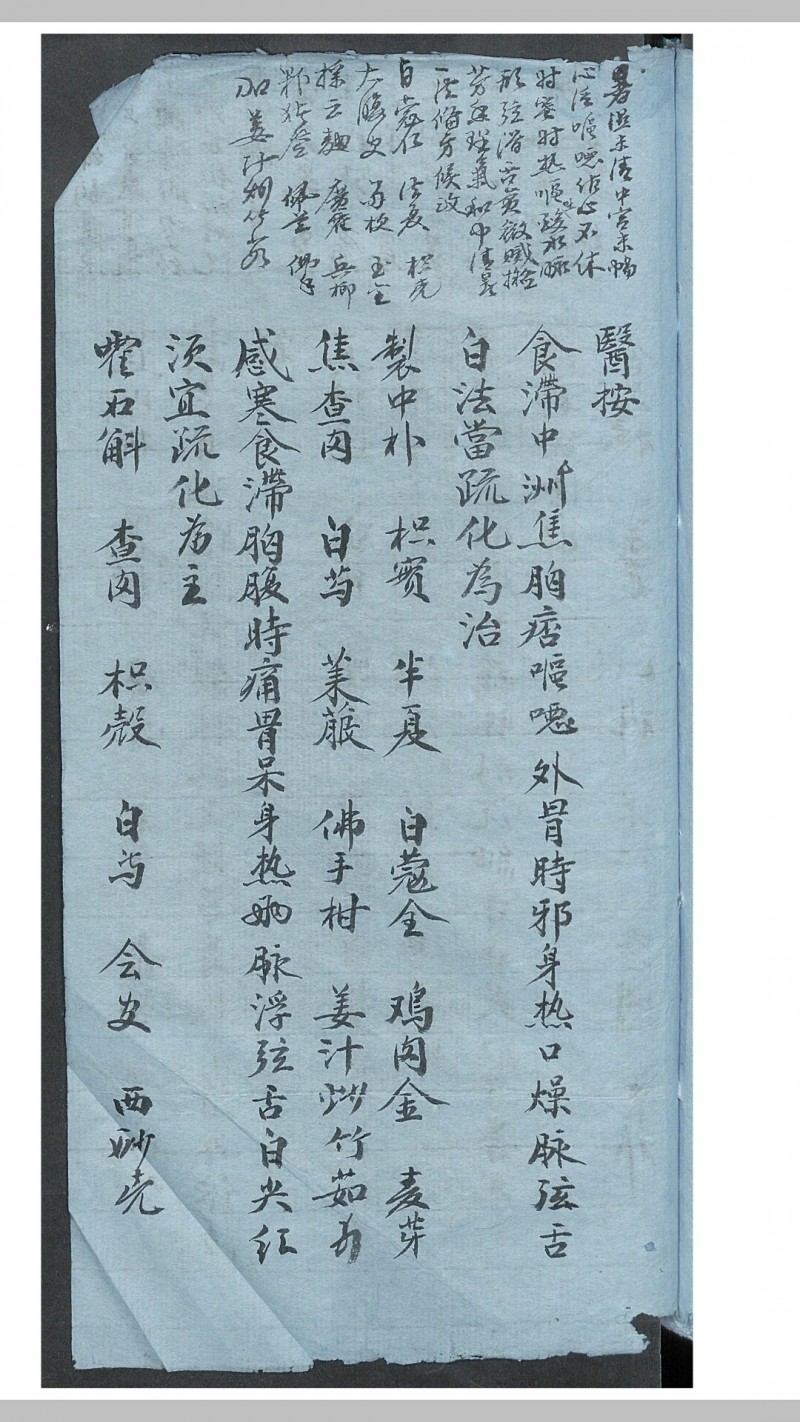 暑濕未清中宮未暢
心法嘔噁佔心不休
时寒时热嘔酸水脉
弦滑苔黃微膩擬
芳香理氣和中清暑
一法備方候政
白蔻仁 法夏 枳壳
大腹皮 玉金
採云麯 廣藿 兵榔
佩兰 佛手
加姜汁炒竹茹
醫按
食滯中洲焦胸痞嘔噁外冒時邪身热口燥脈弦舌
白法當疏化為治
製中朴 枳實 半夏 白蔻仝 鸡内金 麦芽
焦查肉 白芍 莱菔 佛手柑 姜汁炒竹茹
感寒食滯胸腹時痛胃呆身热 脈浮弦舌白尖红
须宜疏化为主
霍石斛 查肉 枳殻 白芍 会皮 西砂壳